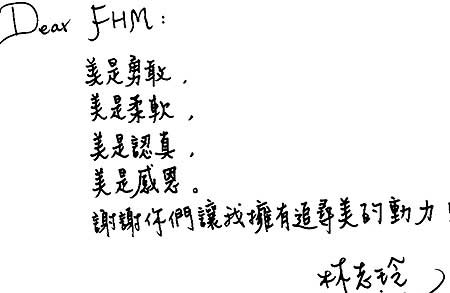 Dear FHM:
美是勇敢,
美是柔軟,
美是認真,
美是感恩。
謝謝你們讓我擁有追尋美的動力!
林志玲